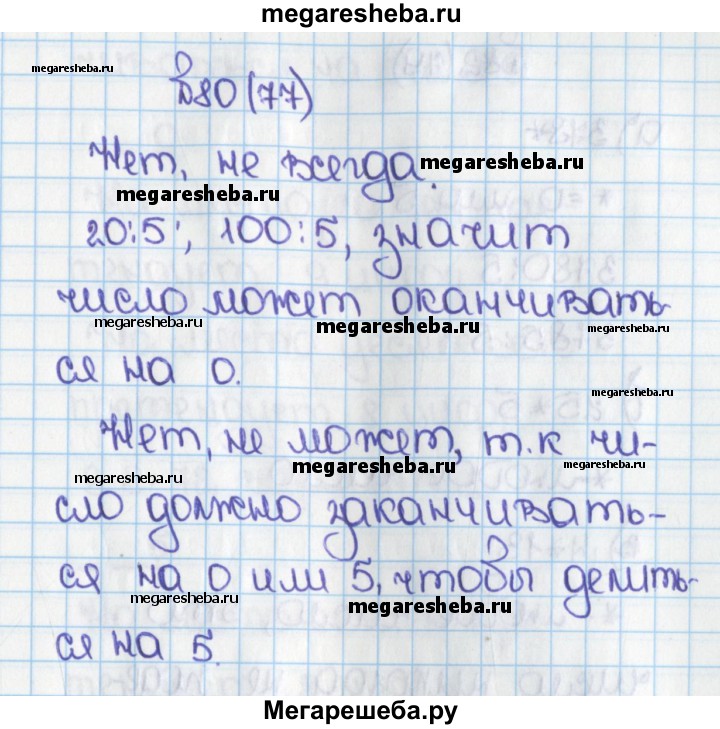 megaresheba.ru
megaresheba.ru
№80(77)
Нет, не всегда. megaresheba.ru
megaresheba.ru
20:5; 100:5, значит
число может оканчивать-
megaresheba.ru megaresheba.ru megaresheba.ru
ся на 0.
megaresheba.ru
Нет, не может, т.к чи-
megaresheba.ru megaresheba.ru megaresheba.ru
сло должно заканчивать-
ся на 0 или 5, чтобы делить-
megaresheba.ru megaresheba.ru
ся на 5.
Мегарешеба.ру